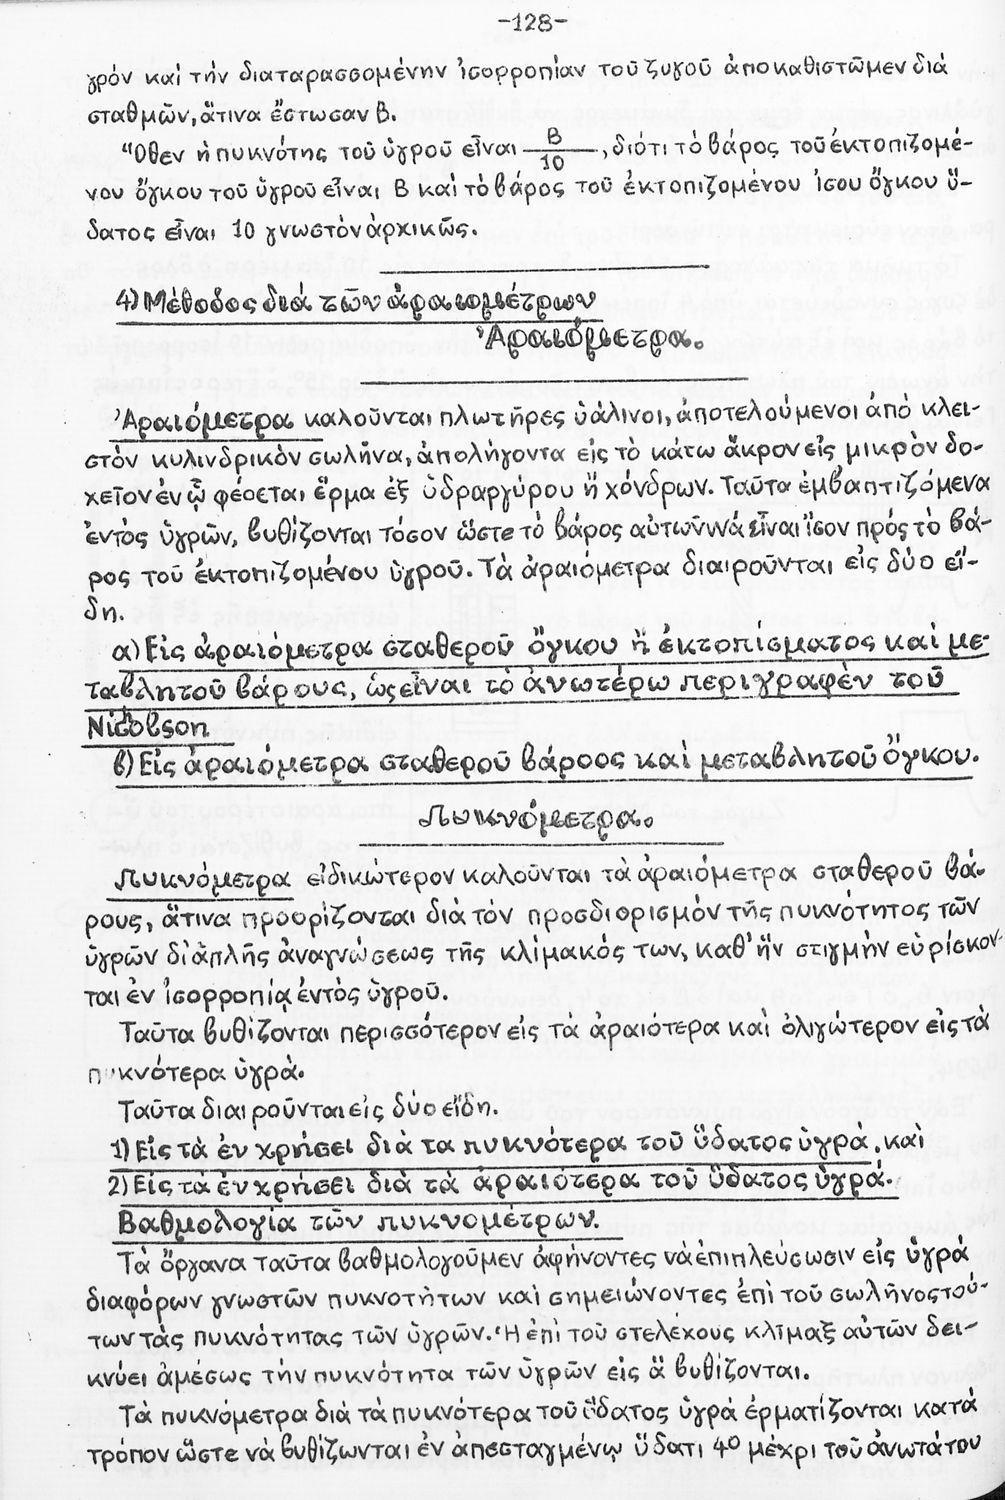 -128-
γρόν καί τήν διαταρασσομένην ἰσορροπίαν τοῦ ζυγοῦ ἀποκαθιστῶμεν διά
σταθμῶν, ἅτινα ἔστωσαν Β.
Ὅθεν ἡ πυκνότης τοῦ ὑγροῦ εἶναι Β/10, διότι τὸ βάρος τοῦ ἐκτοπιζομέ-
νου ὄγκου τοῦ ὑγροῦ εἶναι Β καί τὸ βάρος τοῦ ἐκτοπιζομένου ἴσου ὄγκου ὕ-
δατος εἶναι 10 γνωστὸν ἀρχικῶς.
4) Μέθοδος διά τῶν ἀραιομέτρων
Ἀραιόμετρα.
Ἀραιόμετρα καλοῦνται πλωτῆρες ὑάλινοι, ἀποτελούμενοι ἀπό κλει-
στόν κυλινδρικὸν σωλῆνα, ἀπολήγοντα εἰς τὸ κάτω ἄκρον εἰς μικρὸν δο-
χεῖον ἐν ᾧ φέρεται ἕρμα ἐξ ὑδραργύρου ἤ χόνδρων. Ταῦτα ἐμβαπτιζόμενα
ἐντός ὑγρῶν, βυθίζονται τόσον ὥστε τὸ βάρος αὐτῶν νά εἶναι ἴσον πρός τὸ βά-
ρος τοῦ ἐκτοπιζομένου ὑγροῦ. Τὰ ἀραιόμετρα διαιροῦνται εἰς δύο εἴ-
δη.
α) Εἰς ἀραιόμετρα σταθεροῦ ὄγκου ἤ ἐκτοπίσματος καὶ με-
ταβλητοῦ βάρους, ὡς εἶναι τὸ ἀνωτέρω περιγραφὲν τοῦ
Nicolson
β) Εἰς ἀραιόμετρα σταθεροῦ βάροος καὶ μεταβλητοῦ ὄγκου.
Πυκνόμετρα.
Πυκνόμετρα εἰδικώτερον καλοῦνται τὰ ἀραιόμετρα σταθεροῦ βά-
ρους, ἅτινα προορίζονται διά τόν προσδιορισμόν τῆς πυκνότητος τῶν
ὑγρῶν δι' ἁπλῆς ἀναγνώσεως τῆς κλίμακός των, καθ' ἥν στιγμὴν εὑρίσκον-
ται ἐν ἰσορροπίᾳ ἐντός ὑγροῦ.
Ταῦτα βυθίζονται περισσότερον εἰς τὰ ἀραιότερα καὶ ὀλιγώτερον εἰς τὰ
πυκνότερα ὑγρὰ.
Ταῦτα διαιροῦνται εἰς δύο εἴδη.
1) Εἰς τὰ ἐν χρήσει διὰ τα πυκνότερα τοῦ ὕδατος ὑγρά, καὶ
2) Εἰς τὰ ἐν χρήσει διὰ τὰ ἀραιότερα τοῦ ὕδατος ὑγρά.
Βαθμολογία τῶν πυκνομέτρων.
Τὰ ὄργανα ταῦτα βαθμολογοῦμεν ἀφήνοντες νὰ ἐπιπλεύσωσιν εἰς ὑγρά
διαφόρων γνωστῶν πυκνοτήτων καὶ σημειώνοντες ἐπὶ τοῦ σωλῆνος τού-
των τὰς πυκνότητας τῶν ὑγρῶν. Ἡ ἐπὶ τοῦ στελέχους κλῖμαξ αὐτῶν δει-
κνύει ἀμέσως τήν πυκνότητα τῶν ὑγρῶν εἰς ἅ βυθίζονται.
Τὰ πυκνόμετρα διά τὰ πυκνότερα τοῦ ὕδατος ὑγρά ἑρματίζονται κατά
τρόπον ὥστε νὰ βυθίζωνται ἐν ἀπεσταγμένῳ ὕδατι 4⁰ μέχρι τοῦ ἀνωτάτου